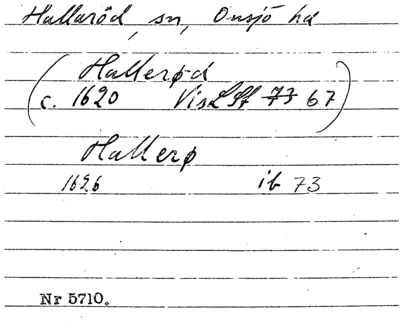 Hallaröd, sn, Onsjö hd
(Hallerø-d
c. 1620 VisLSt 73 67)
Hallerø
1696 ib 73
Nr 5710.